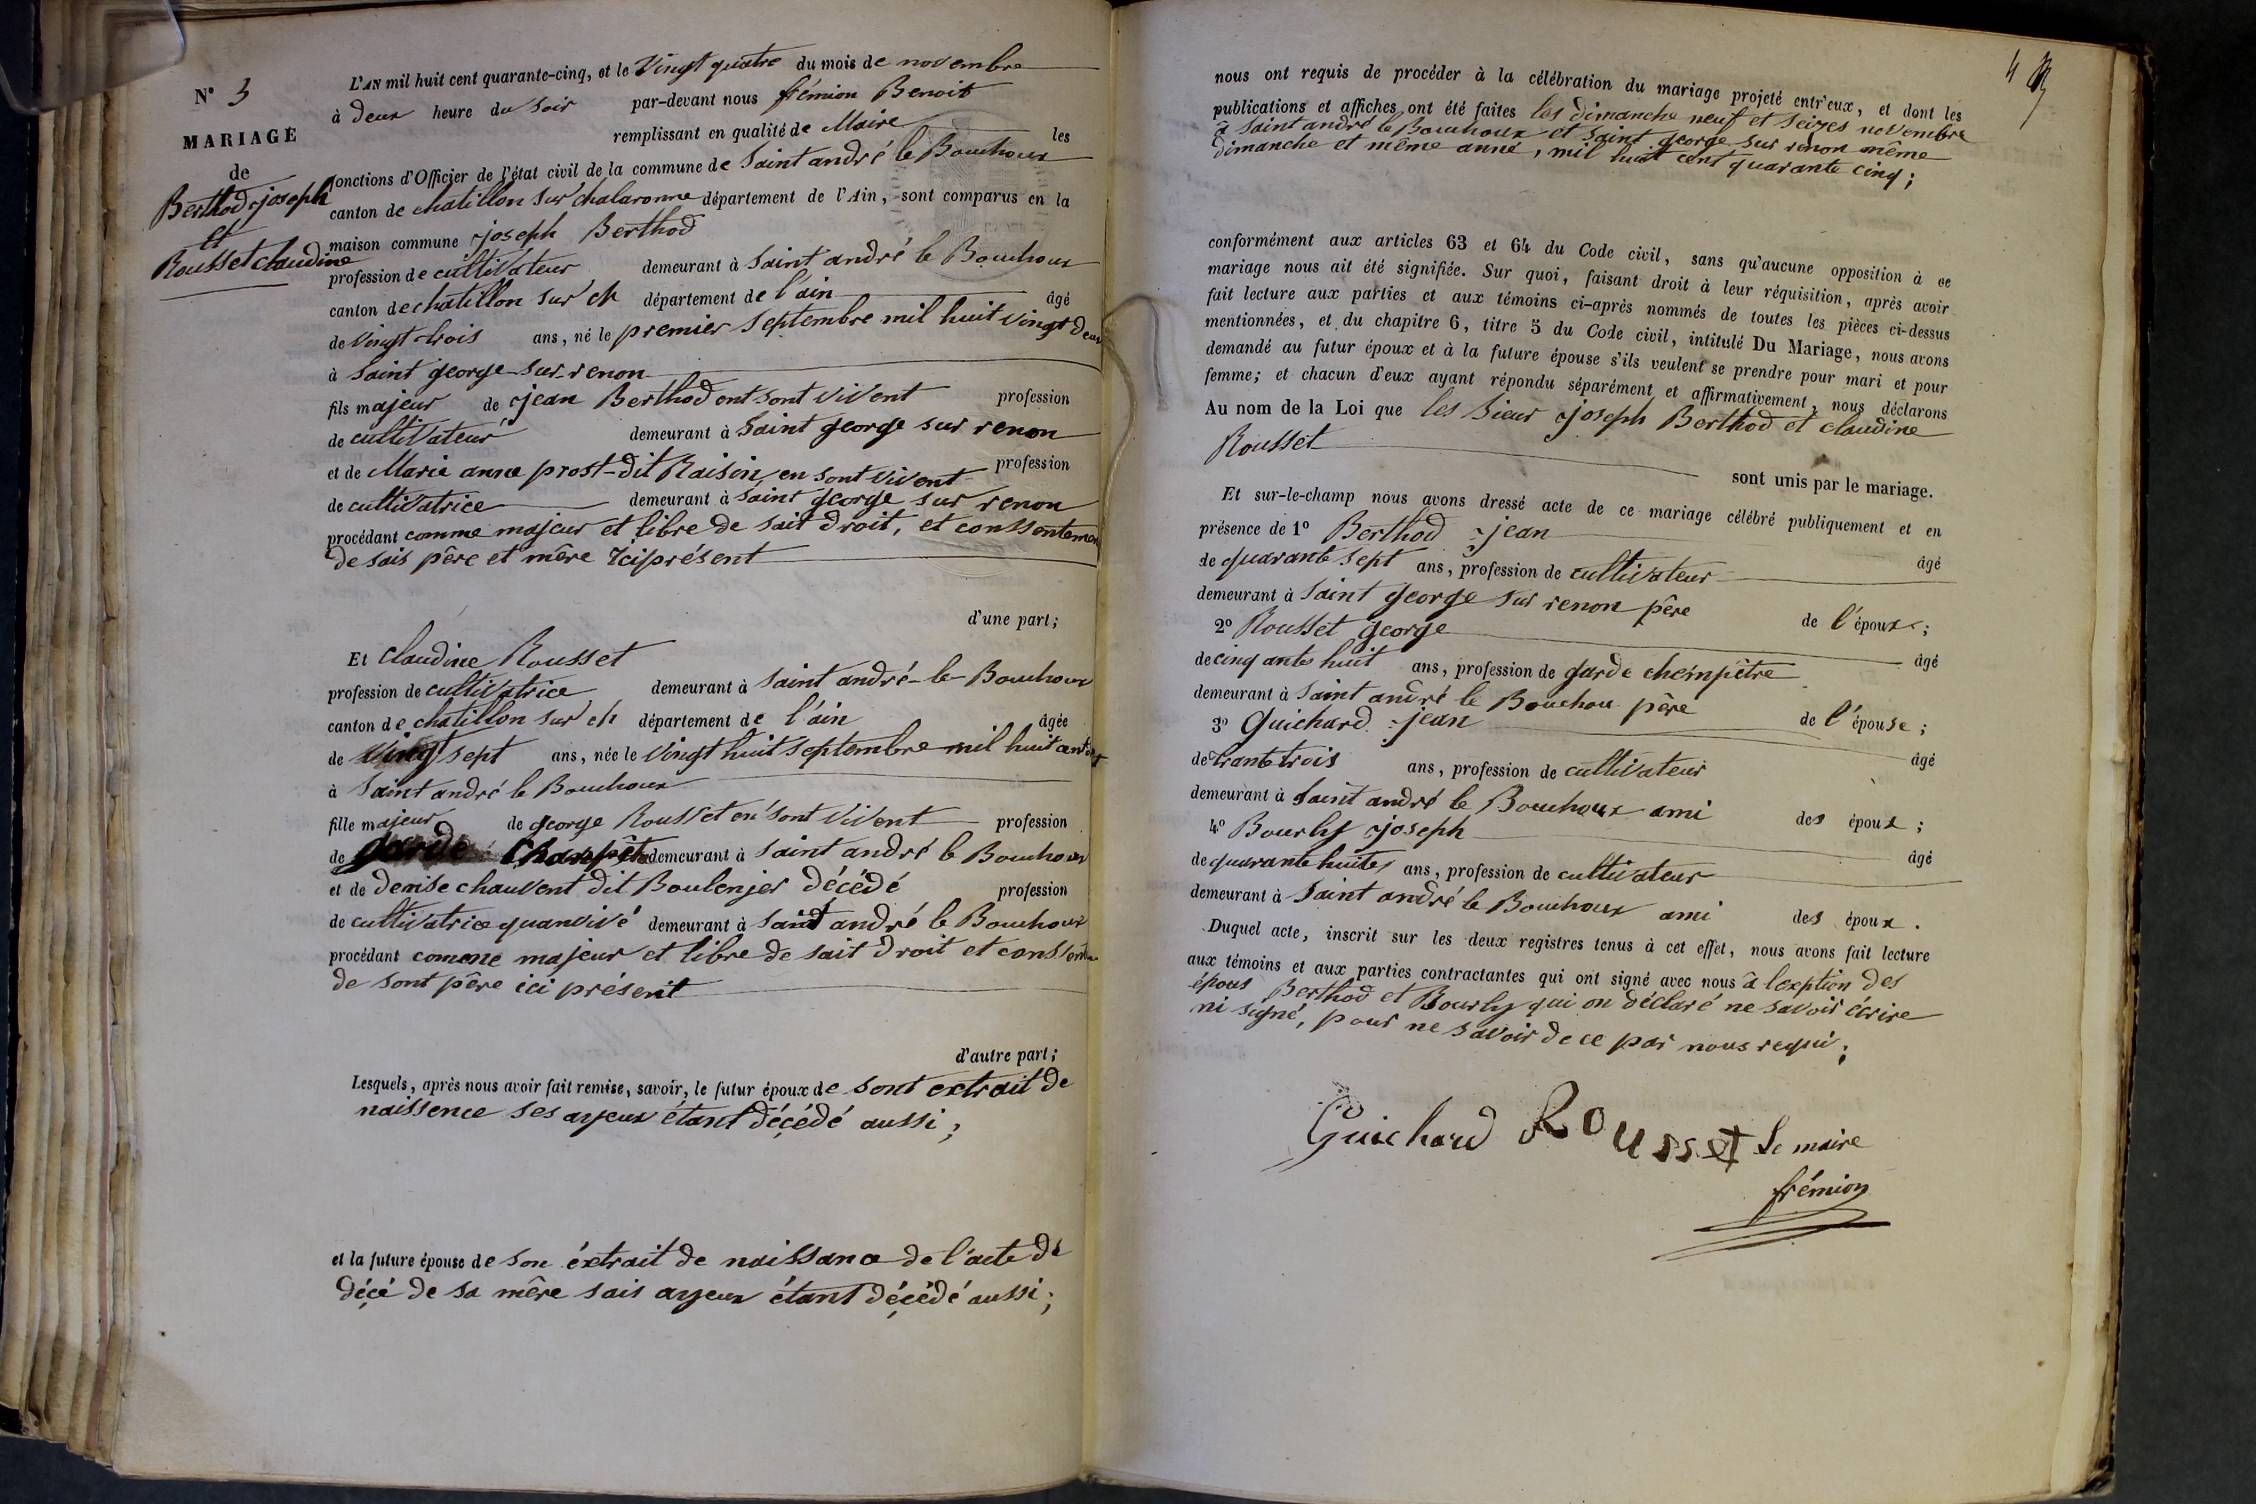 N° 3
MARIAGE
de
Berthod joseph
et
Rousset claudine
L'AN mil huit cent quarante-cinq, et le Vingt quatre du mois de novembre
à deux heure du Soir par-devant nous frémion Benoit
remplissant en qualité de Maire les
fonctions d'Officier de l'état civil de la commune de Saint andré le Bouchoux
canton de chatillon sur chalaronne département de l'Ain, sont comparus en la
maison commune joseph Berthod
profession de cultivateur demeurant à Saint andré le Bouchoux
canton de chatillon sur ch département de l'ain âgé
de Vingt trois ans, né le premier Septembre mil huit Vingt deux
à Saint george sur renon
fils majeur de jean Berthod ont sont vivent profession
de cultivateur demeurant à Saint george sur renon
et de Marie anne prost-dit Raisin en sont vivent profession
de cultivatrice demeurant à Saint george sur renon
procédant comme majeur et libre de sait droit, et conssentemen
de sais père et mère ici présent
d'une part;
Et claudine Rousset
profession de cultivatrice demeurant à Saint andré-le-Bouchoux
canton de chatillon sur ch département de l'ain âgée
de Vingt sept ans, née le Vingt huit septembre mil huit cent
à Saint andré le Bouchoux
fille majeur de george Rousset en sont vivent profession
de garde Champêt demeurant à Saint andré le Bouchoux
et de denise chauvent dit Boulenjer décédé profession
de cultivatrice quanvivé demeurant à Saint andré le Bouchoux
procédant comme majeur et libre de sait droit et conssent
de sont père ici présent
d'autre part;
Lesquels, après nous avoir fait remise, savoir, le futur époux de sont extrait de
naissence ses ayeux étant décédé aussi;
et la future épouse de son éxtrait de naissance de l'acte de
décé de sa mère sais ayeux étant décédé aussi;
4
nous ont requis de procéder à la célébration du mariage projeté entr'eux, et dont les
publications et affiches ont été faites les dimanche neuf et Seizes novembre
à Saint andré le Bouchoux et Saint george sur renon même
dimanche et même anné, mil huit cent quarante cinq;
conformément aux articles 63 et 64 du Code civil, sans qu'aucune opposition à ce
mariage nous ait été signifiée. Sur quoi, faisant droit à leur réquisition, après avoir
fait lecture aux parties et aux témoins ci-après nommés de toutes les pièces ci-dessus
mentionnées, et du chapitre 6, titre 5 du Code civil, intitulé Du Mariage, nous avons
demandé au futur époux et à la future épouse s'ils veulent se prendre pour mari et pour
femme; et chacun d'eux ayant répondu séparément et affirmativement, nous déclarons
Au nom de la Loi que les Sieur joseph Berthod et claudine
Rousset
sont unis par le mariage.
Et sur-le-champ nous avons dressé acte de ce mariage célébré publiquement et en
présence de 1° Berthod jean âgé
de quarante sept ans, profession de cultivateur
demeurant à Saint george sur renon père de l'époux;
2° Rousset george âgé
de cinq ante huit ans, profession de garde chempêtre
demeurant à Saint andré le Bouchou père de l'épouse;
3° Guichard jean âgé
de trante trois ans, profession de cultivateur
demeurant à Saint andré le Bouchoux ami des époux;
4° Bourly joseph âgé
de quarante huites ans, profession de cultivateur
demeurant à Saint andré le Bouchoux ami des époux.
Duquel acte, inscrit sur les deux registres tenus à cet effet, nous avons fait lecture
aux témoins et aux parties contractantes qui ont signé avec nous à l'exption des
épous Berthod et Bourly qui on déclaré ne savoir écrire
ni signé, pour ne savoir de ce par nous requi;
Guichard Rousset Le maire
frémion